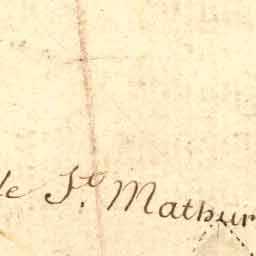 de St. Mathur